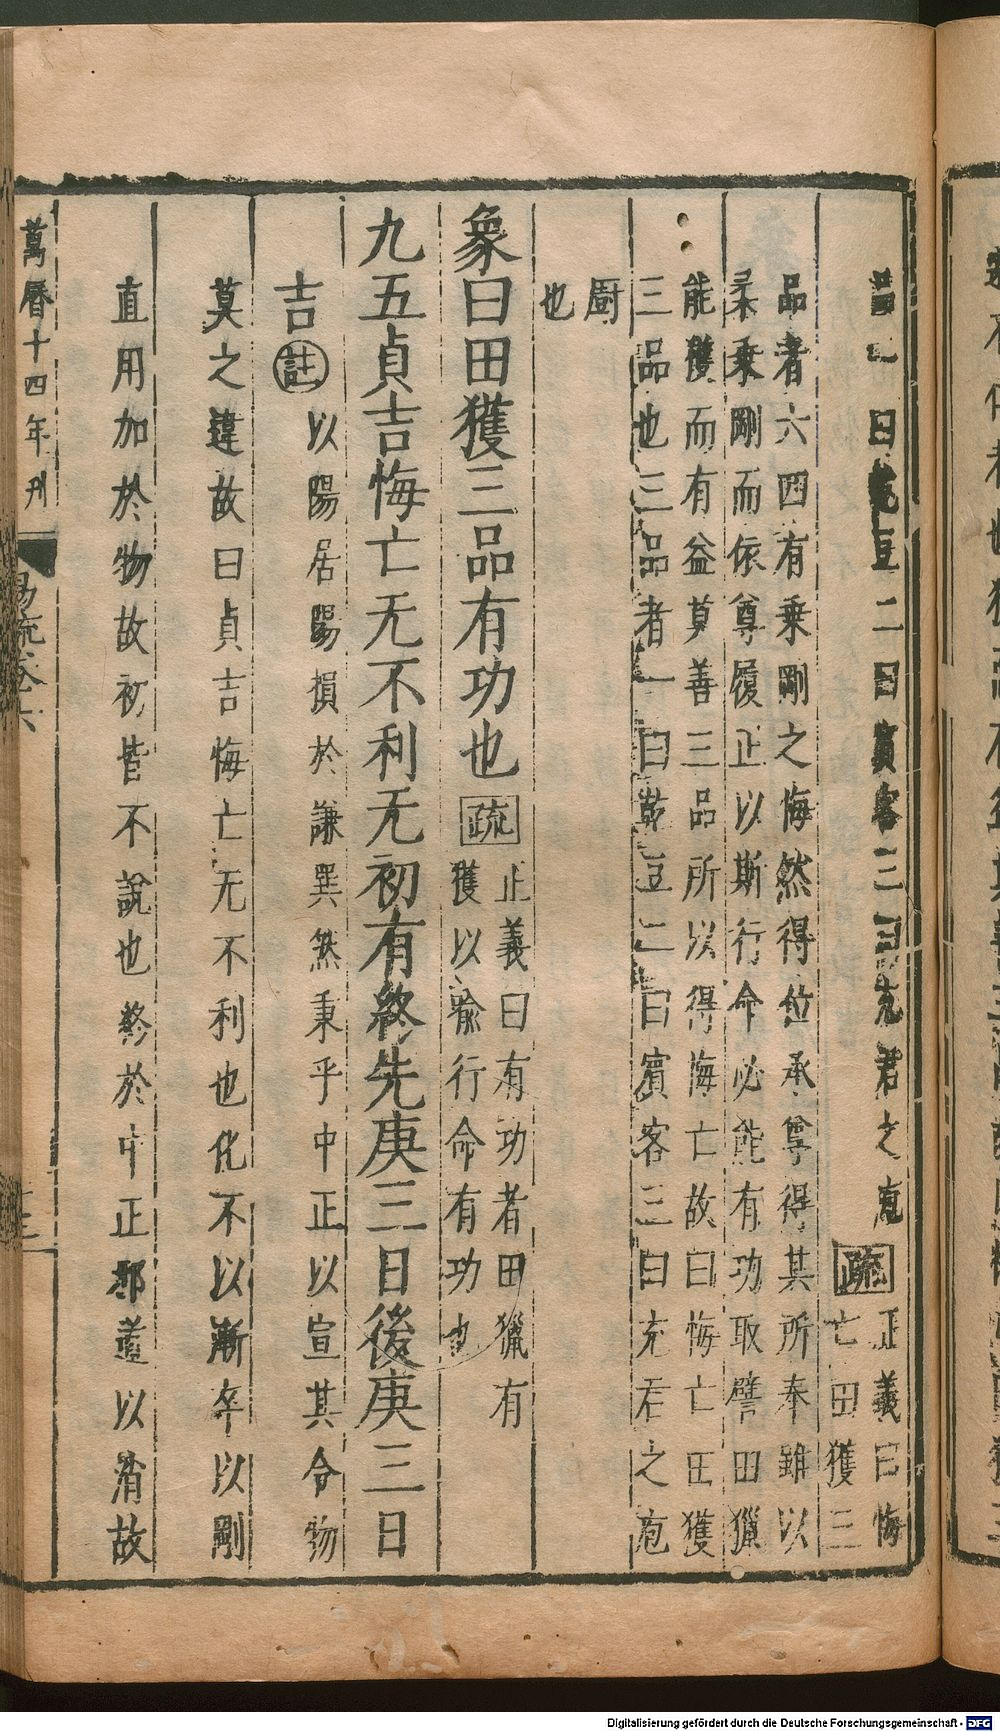 品一曰乾豆二曰賓客三曰充君之庖疏正義曰悔
亡田獲三
品者六四有乗剛之悔然得位承尊得其所奉雖以
柔乗剛而依尊履正以斯行命必能有功取譬田獵
能獲而有益莫善三品所以得悔亡故曰悔亡田獲
三品也三品者一曰乾豆二曰賓客三曰充君之庖
厨
也
象曰田獲三品有功也疏正義曰有功者田獵有
獲以喻行命有功也
九五貞吉悔亡无不利无初有終先庚三日後庚三日
吉註以陽居陽損於謙巽然秉乎中正以宣其令物
莫之違故曰貞吉悔亡无不利也化不以漸卒以剛
直用加於物故初皆不說也終於中正邪道以消故
萬曆十四年刋
易疏卷六
Digitalisierung gefördert durch die Deutsche Forschungsgemeinschaft - DFG